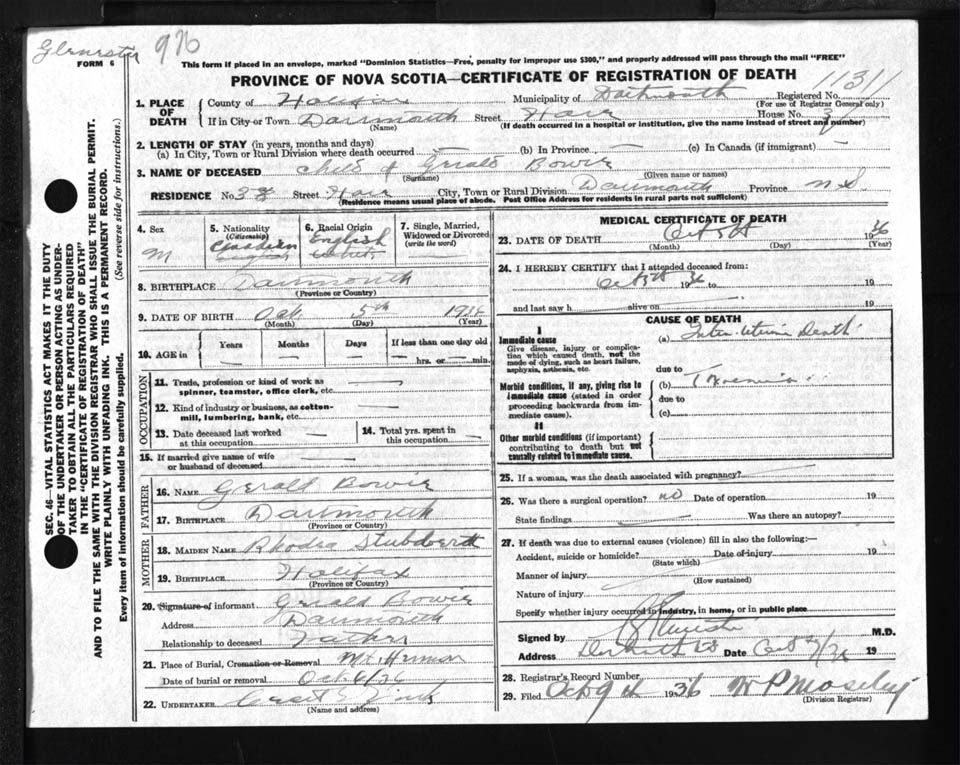 976
FORM 6
This form if placed in an envelope, marked "Dominion Statistics—Free, penalty for improper use $300," and properly addressed will pass through the mail "FREE"
PROVINCE OF NOVA SCOTIA—CERTIFICATE OF REGISTRATION OF DEATH
11311
1. PLACE OF DEATH
County of Halifax Municipality of Dartmouth Registered No.
(For use of Registrar General only)
If in City or Town Dartmouth Street House No.
(Name) (If death occurred in a hospital or institution, give the name instead of street and number)
2. LENGTH OF STAY (in years, months and days)
(a) In City, Town or Rural Division where death occurred — (b) In Province — (c) In Canada (if immigrant) —
3. NAME OF DECEASED Child of Gerald Bowie
(Surname) (Given name or names)
RESIDENCE No. 38 Street City, Town or Rural Division Dartmouth Province N.S.
(Residence means usual place of abode. Post Office Address for residents in rural parts not sufficient)
4. Sex
M
5. Nationality (Citizenship)
Canadian
English
6. Racial Origin
English
White
7. Single, Married, Widowed or Divorced (write the word)
8. BIRTHPLACE Dartmouth
(Province or Country)
9. DATE OF BIRTH Oct 5th 1936
(Month) (Day) (Year)
10. AGE in
Years Months Days If less than one day old
hrs. or min.
OCCUPATION
11. Trade, profession or kind of work as spinner, teamster, office clerk, etc. —
12. Kind of industry or business, as cotton-mill, lumbering, bank, etc. —
13. Date deceased last worked at this occupation —
14. Total yrs. spent in this occupation —
15. If married give name of wife or husband of deceased —
FATHER
16. NAME Gerald Bowie
17. BIRTHPLACE Dartmouth
(Province or Country)
MOTHER
18. MAIDEN NAME Rhoda
19. BIRTHPLACE Halifax
(Province or Country)
20. Signature of informant Gerald Bowie
Address Dartmouth
Relationship to deceased Father
21. Place of Burial, Cremation or Removal Mt. Herman
Date of burial or removal Oct 6/36
22. UNDERTAKER
(Name and address)
MEDICAL CERTIFICATE OF DEATH
23. DATE OF DEATH Oct 5th 1936
(Month) (Day) (Year)
24. I HEREBY CERTIFY that I attended deceased from:
Oct 5th 1936 to 19
and last saw h alive on 19
CAUSE OF DEATH
I
Immediate cause
Give disease, injury or complication which caused death, not the mode of dying, such as heart failure, asphyxia, asthenia, etc.
(a) Inter Uterine Death
due to
Morbid conditions, if any, giving rise to immediate cause (stated in order proceeding backwards from immediate cause).
(b) Toxaemia
due to
(c)
II
Other morbid conditions (if important) contributing to death but not causally related to immediate cause.
25. If a woman, was the death associated with pregnancy?
26. Was there a surgical operation? no Date of operation 19
State findings Was there an autopsy?
27. If death was due to external causes (violence) fill in also the following:—
Accident, suicide or homicide? Date of injury 19
(State which)
Manner of injury
(How sustained)
Nature of injury
Specify whether injury occurred in industry, in home, or in public place
Signed by M.D.
Address Date Oct 19
28. Registrar's Record Number
29. Filed Oct 1936 W P Moseley
(Division Registrar)
SEC. 46—VITAL STATISTICS ACT MAKES IT THE DUTY
OF THE UNDERTAKER OR PERSON ACTING AS UNDER-
TAKER TO OBTAIN ALL THE PARTICULARS REQUIRED
IN THE "CERTIFICATE OF REGISTRATION OF DEATH"
AND TO FILE THE SAME WITH THE DIVISION REGISTRAR WHO SHALL ISSUE THE BURIAL PERMIT.
WRITE PLAINLY WITH UNFADING INK. THIS IS A PERMANENT RECORD.
Every item of information should be carefully supplied. (See reverse side for instructions.)